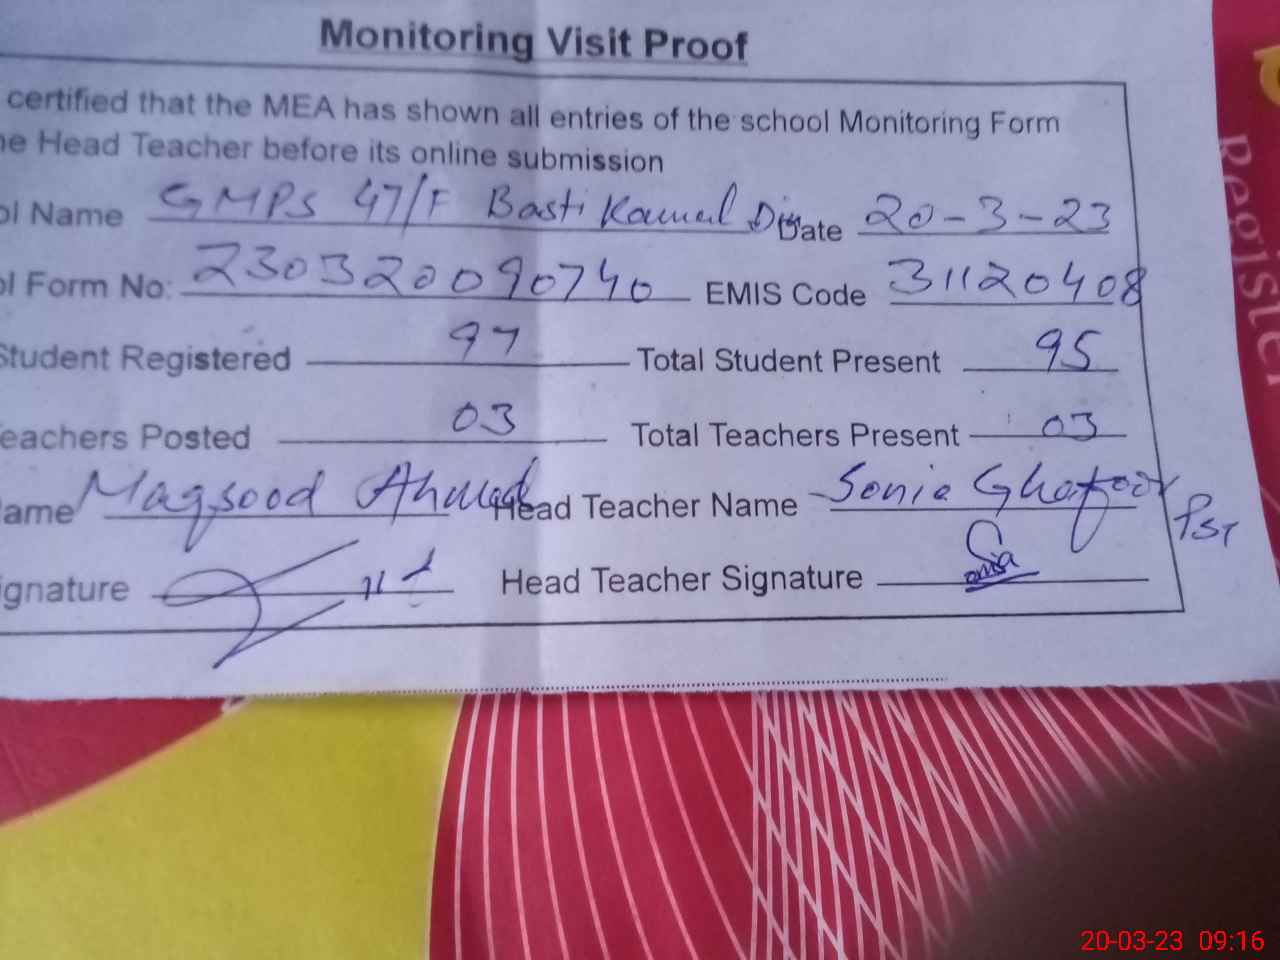 Monitoring Visit Proof
certified that the MEA has shown all entries of the school Monitoring Form
he Head Teacher before its online submission
ol Name GMPS 47/F Basti Kamal Din Date 20-3-23
ol Form No: 230320090740 EMIS Code 31120408
Student Registered 97 Total Student Present 95
eachers Posted 03 Total Teachers Present 03
ame Maqsood Ahmad Head Teacher Name Sonia Ghafoor PST
ignature Head Teacher Signature Sonia
Register
20-03-23 09:16